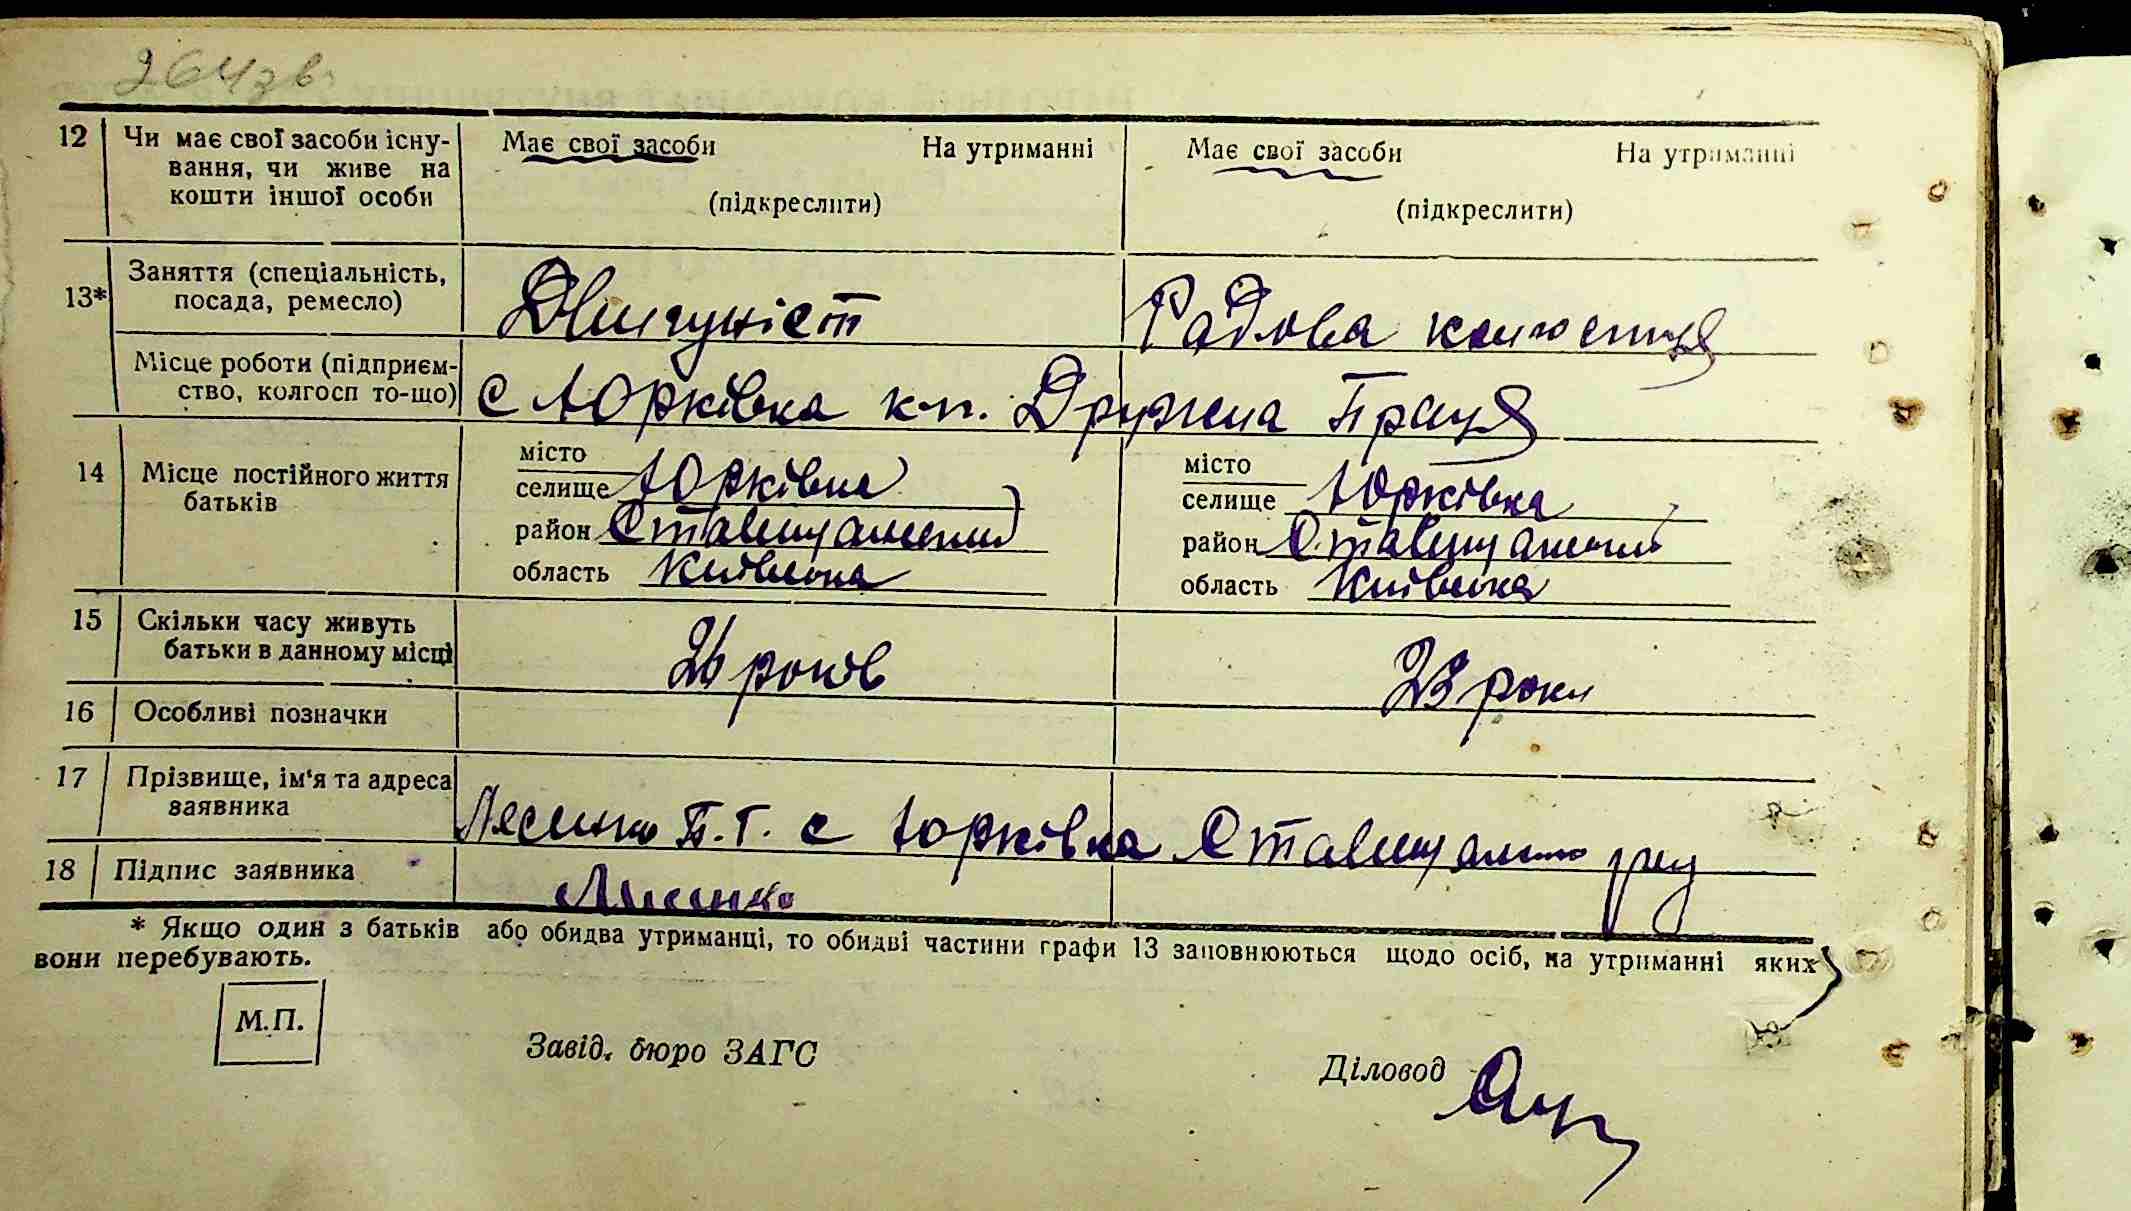 264зв
12 Чи має свої засоби існу- Має свої засоби На утриманні Має свої засоби На утриманні
вання, чи живе на
кошти іншої особи (підкреслити) (підкреслити)
13* Заняття (спеціальність,
посада, ремесло) Двигуніст Радова колгоспниця
Місце роботи (підприєм-
ство, колгосп то-що) с Юрківка кп. Дружна Праця
14 Місце постійного життя місто місто
батьків селище Юрківка селище Юрківка
район Ставищанський район Ставищанський
область Київська область Київська
15 Скільки часу живуть
батьки в данному місці 26 років 23 роки
16 Особливі позначки
17 Прізвище, ім'я та адреса
заявника П.Г. с Юрківка Ставищанського р-ну
18 Підпис заявника
* Якщо один з батьків або обидва утриманці, то обидві частини графи 13 заповнюються щодо осіб, на утриманні яких
вони перебувають.
М.П.
Завід. бюро ЗАГС Діловод